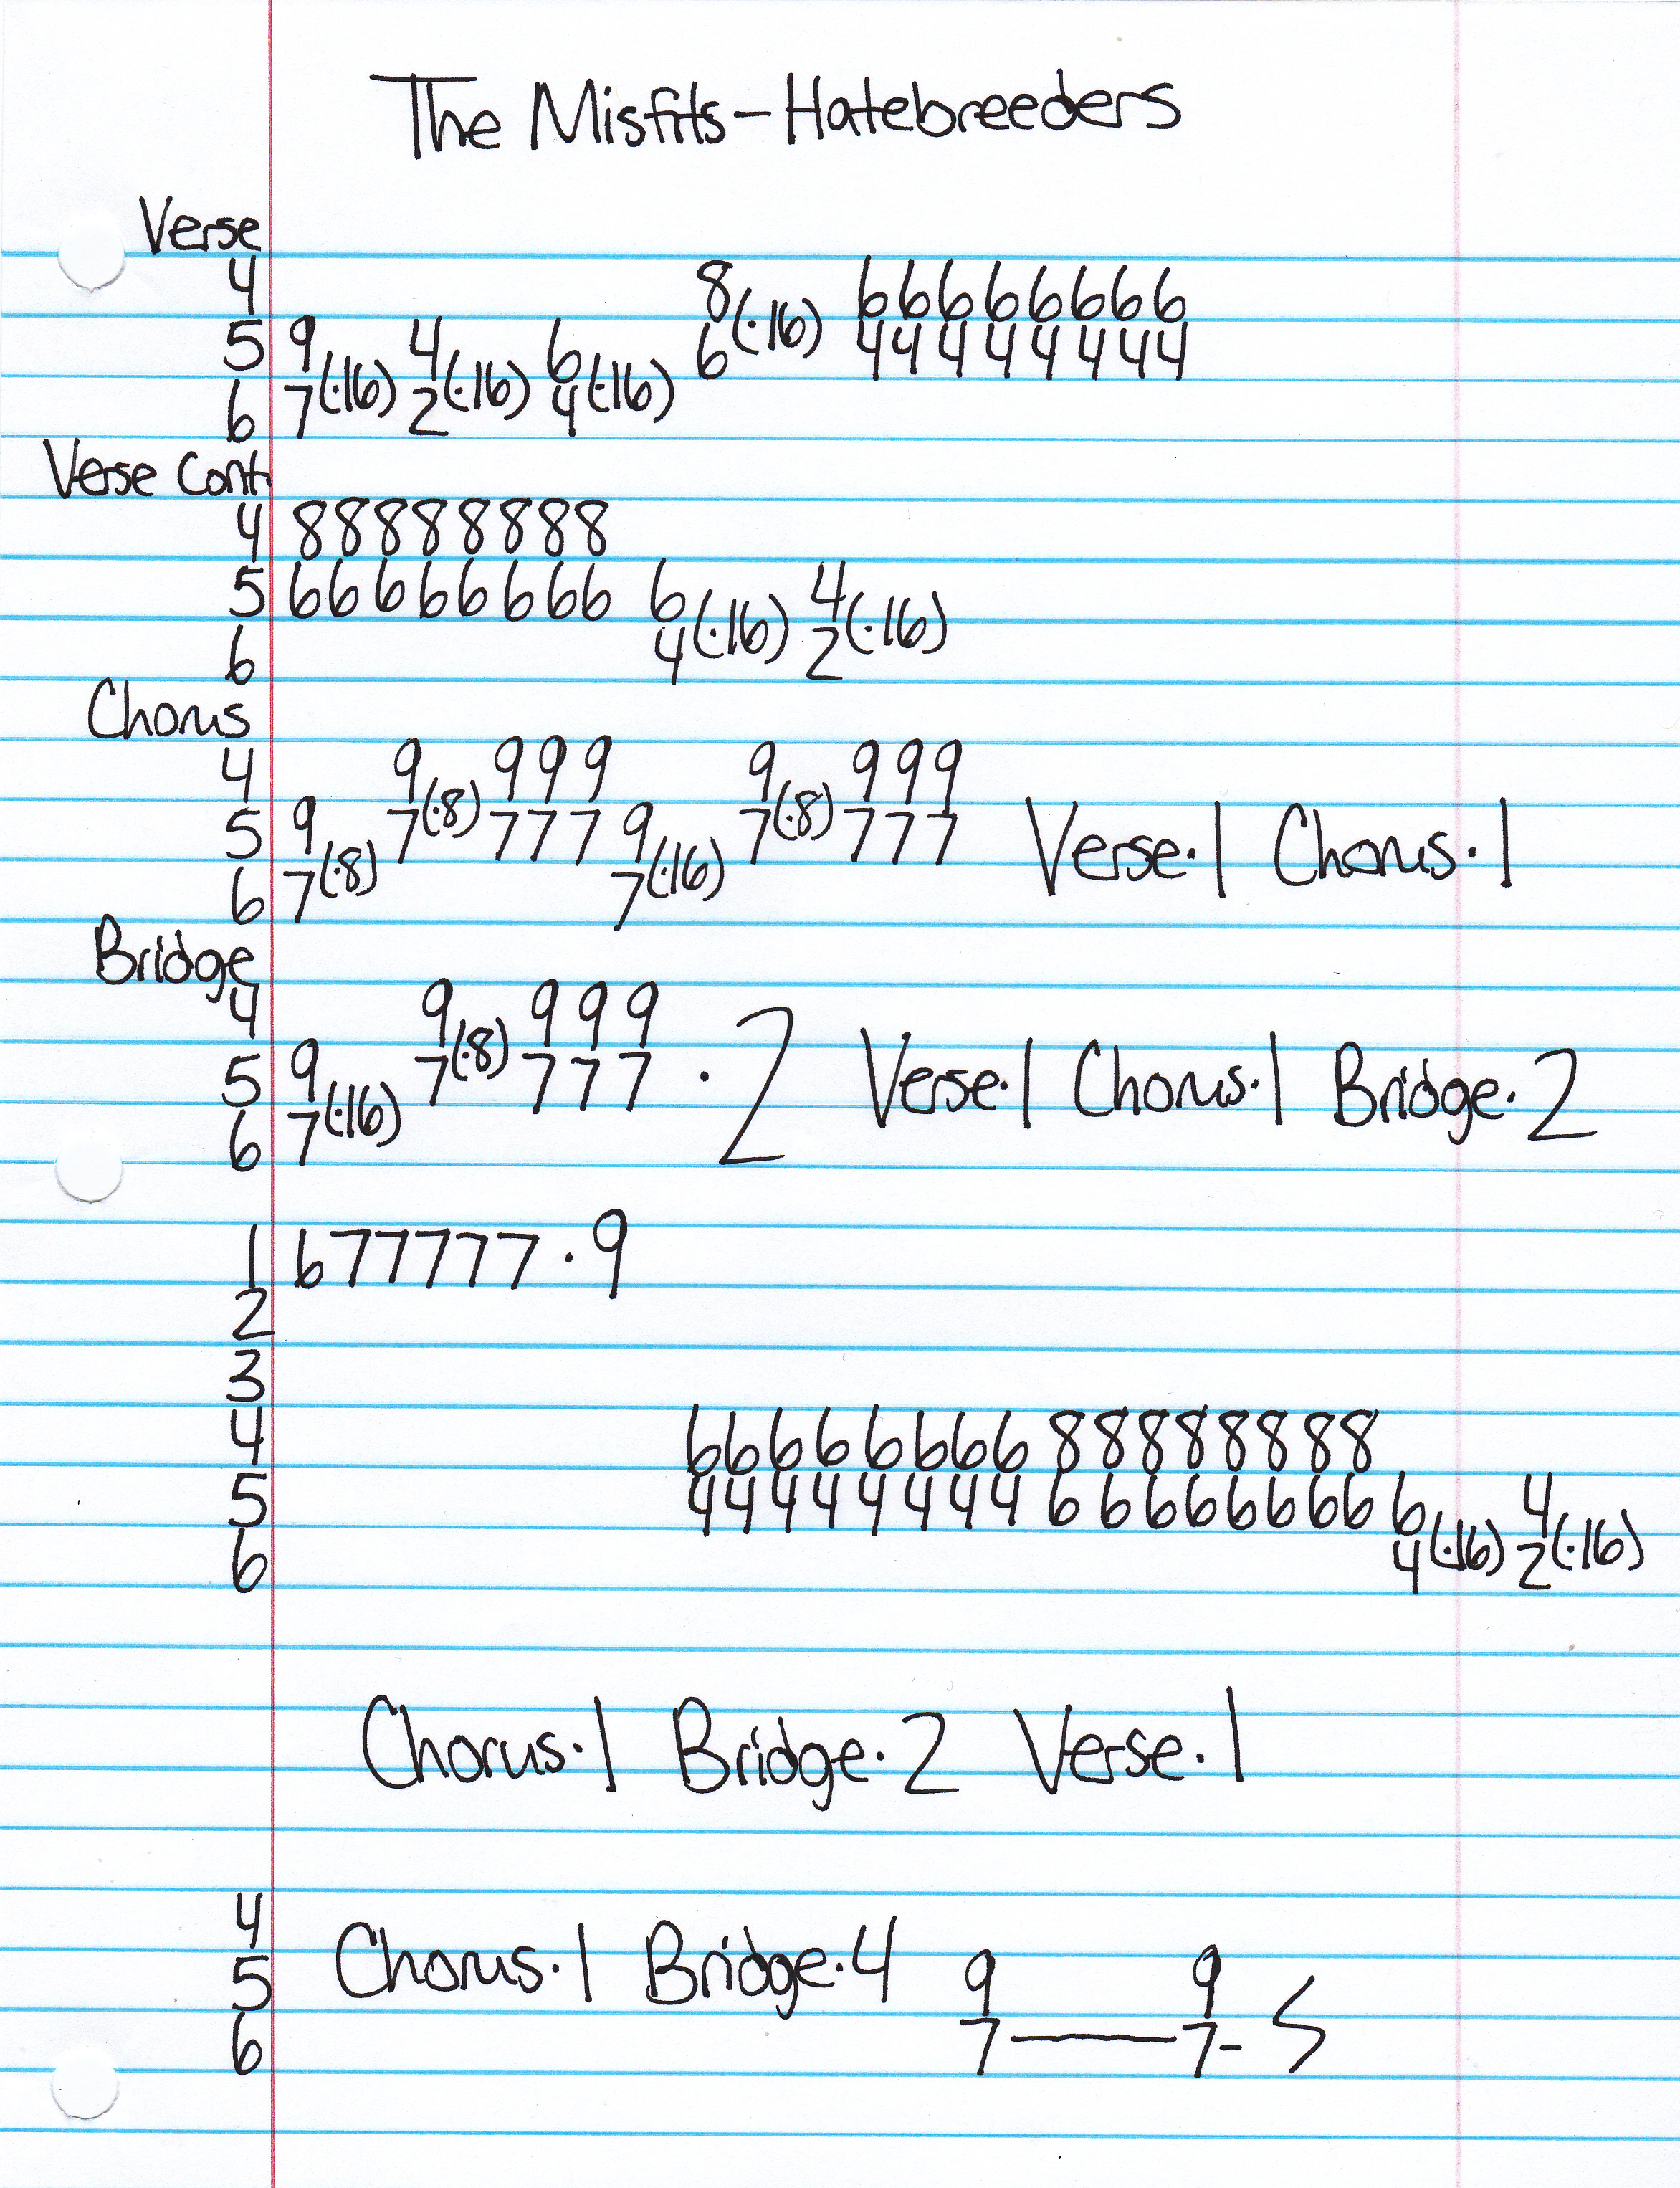 The Misfits - Hatebreeders
Verse
4 8(·16) 6 6 6 6 6 6 6 6
5 9(·16) 4(·16) 6(·16) 6 4 4 4 4 4 4 4 4
6 7 2 4
Verse Cont.
4 8 8 8 8 8 8 8 8
5 6 6 6 6 6 6 6 6 6(·16) 4(·16)
6 4 2
Chorus
4 9(·8) 9 9 9 9(·8) 9 9 9
5 9(·8) 7 7 7 7 9(·16) 7 7 7 7 Verse·1 Chorus·1
6 7 7
Bridge
4 9(·8) 9 9 9
5 9(·16) 7 7 7 7 ·2 Verse·1 Chorus·1 Bridge·2
6 7
1 6 7 7 7 7 7 ·9
2
3
4 6 6 6 6 6 6 6 6 8 8 8 8 8 8 8 8
5 4 4 4 4 4 4 4 4 6 6 6 6 6 6 6 6 6(·16) 4(·16)
6 4 2
Chorus·1 Bridge·2 Verse·1
4
5 Chorus·1 Bridge·4 9 9
6 7 — 7-